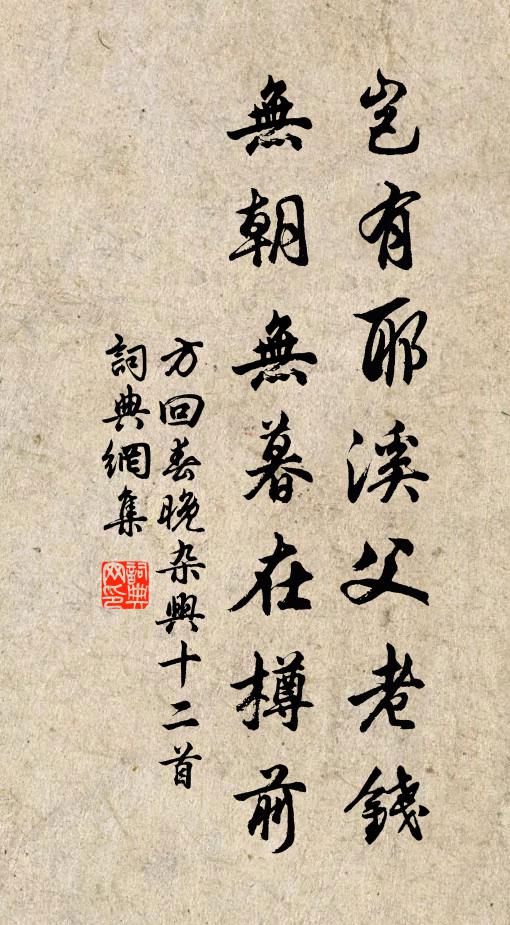 豈有耶溪父老錢
無朝無暮在樽前
方回春晚杂興十二首
詞典網集
詞典
网印